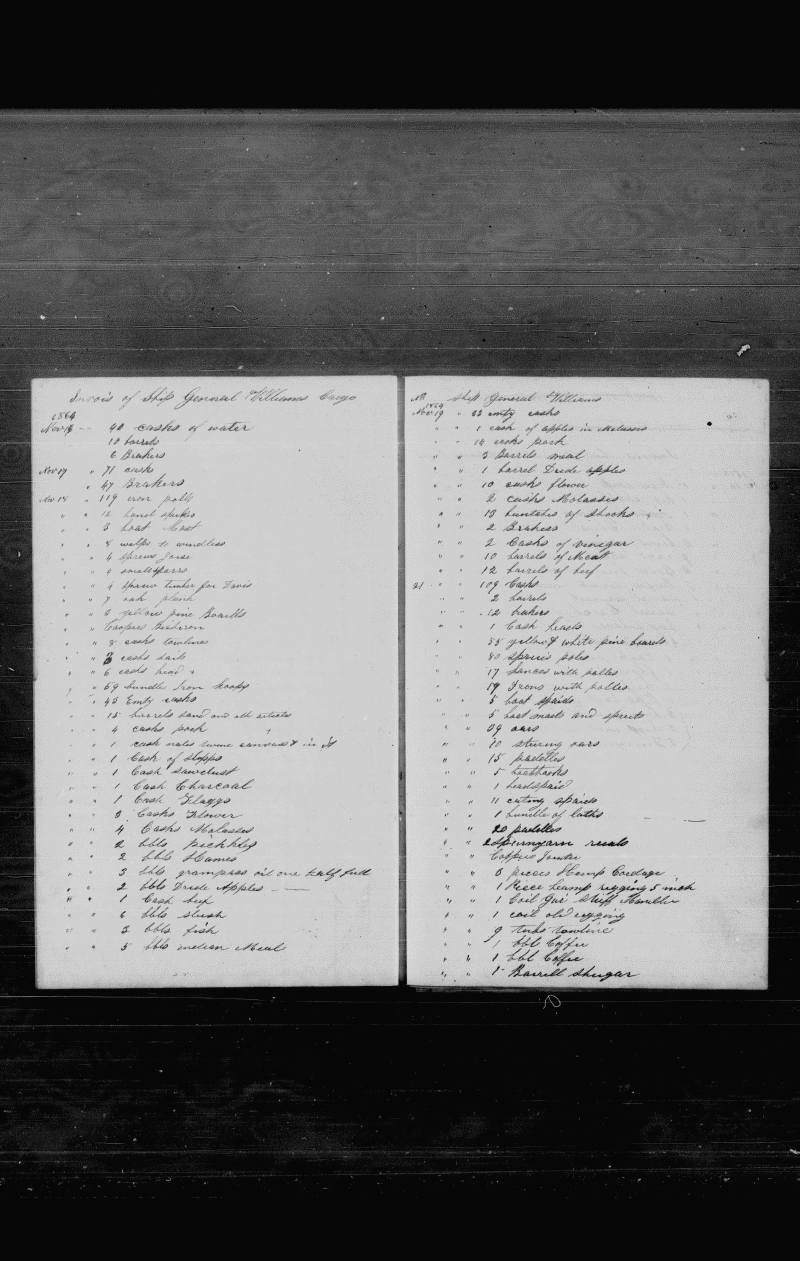 Invois of Ship General Williams Cargo
1864
Nov 18 — 40 casks of water
10 barrels
6 Brakers
Nov 17 " 71 casks
" 47 Brakers
Nov 18 " 119 iron
" " 12 spikes
" " 3 boat Mast
" " 8 to windless
" " 4
" " 4 small sparrs
" " 4 timber for Davis
" " 7 oak plank
" " yellow pine Boards
" " Coopers
" " 8 casks towlines
" " 3 casks
" " 6 casks head
" " 59 bundle Iron hoops
" " 43 Emty casks
" " 15 barrels sand and
" " 4 casks pork
" " 1 cask twine canvass & in it
" " 1 Cask of slopps
" " 1 Cask sawdust
" " 1 Cask Charcoal
" " 1 Cask Flaggs
" " 3 Casks Flower
" " 4 Casks Molasses
" " 2 bbls pickhles
" " 2 bbls Hames
" " 3 bbls grampass oil one half full
" " 2 bbls Dride Apples —
" " 1 Cask beef
" " 6 bbls slush
" " 3 bbls fish
" " 5 bbls indian Meal
Ship General Williams
1864
Nov 19 " 33 emty casks
" " 1 cask of apples in Molasses
" " 14 casks pork
" " 3 Barrels meal
" " 1 barrel Dride apples
" " 10 casks flower
" " 2 casks Molasses
" " 13 buntches of Shocks
" " 2 Brakers
" " 2 Casks of vinegar
" " 10 barrels of Meat
" " 12 barrels of beef
21 " 109 Casks
" " 2 barrels
" " 12 brakers
" " 1 Cask heads
" " 58 yellow & white pine boards
" " 80 spruis poles
" " 17 Lances with polles
" " 19 Irons with polles
" " 5 boat spaids
" " 5 boat masts and spruts
" " 39 oars
" " 10 stering oars
" " 15 paddles
" " 5 boathooks
" " 1 headspaid
" " 11 cuting spaids
" " 1 bundle of laths
" " 20 paddles
" " 2 spunyarn reeals
" " Coopers Jointer
" " 3 pieces Hemp Cordage
" " 1 Piece hemp rigging 5 inch
" " 1 Coil Stuff Manilla
" " 1 coil old rigging
" " 9 tubs towline
" " 1 bbl Coffee
" " 1 bbl Coffee
" " 1 Barrell Shugar